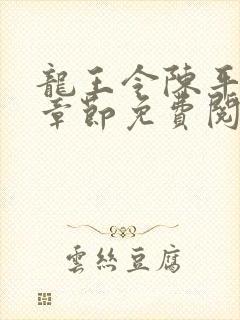 龍王令陳平
章節免費閱
雲絲豆腐